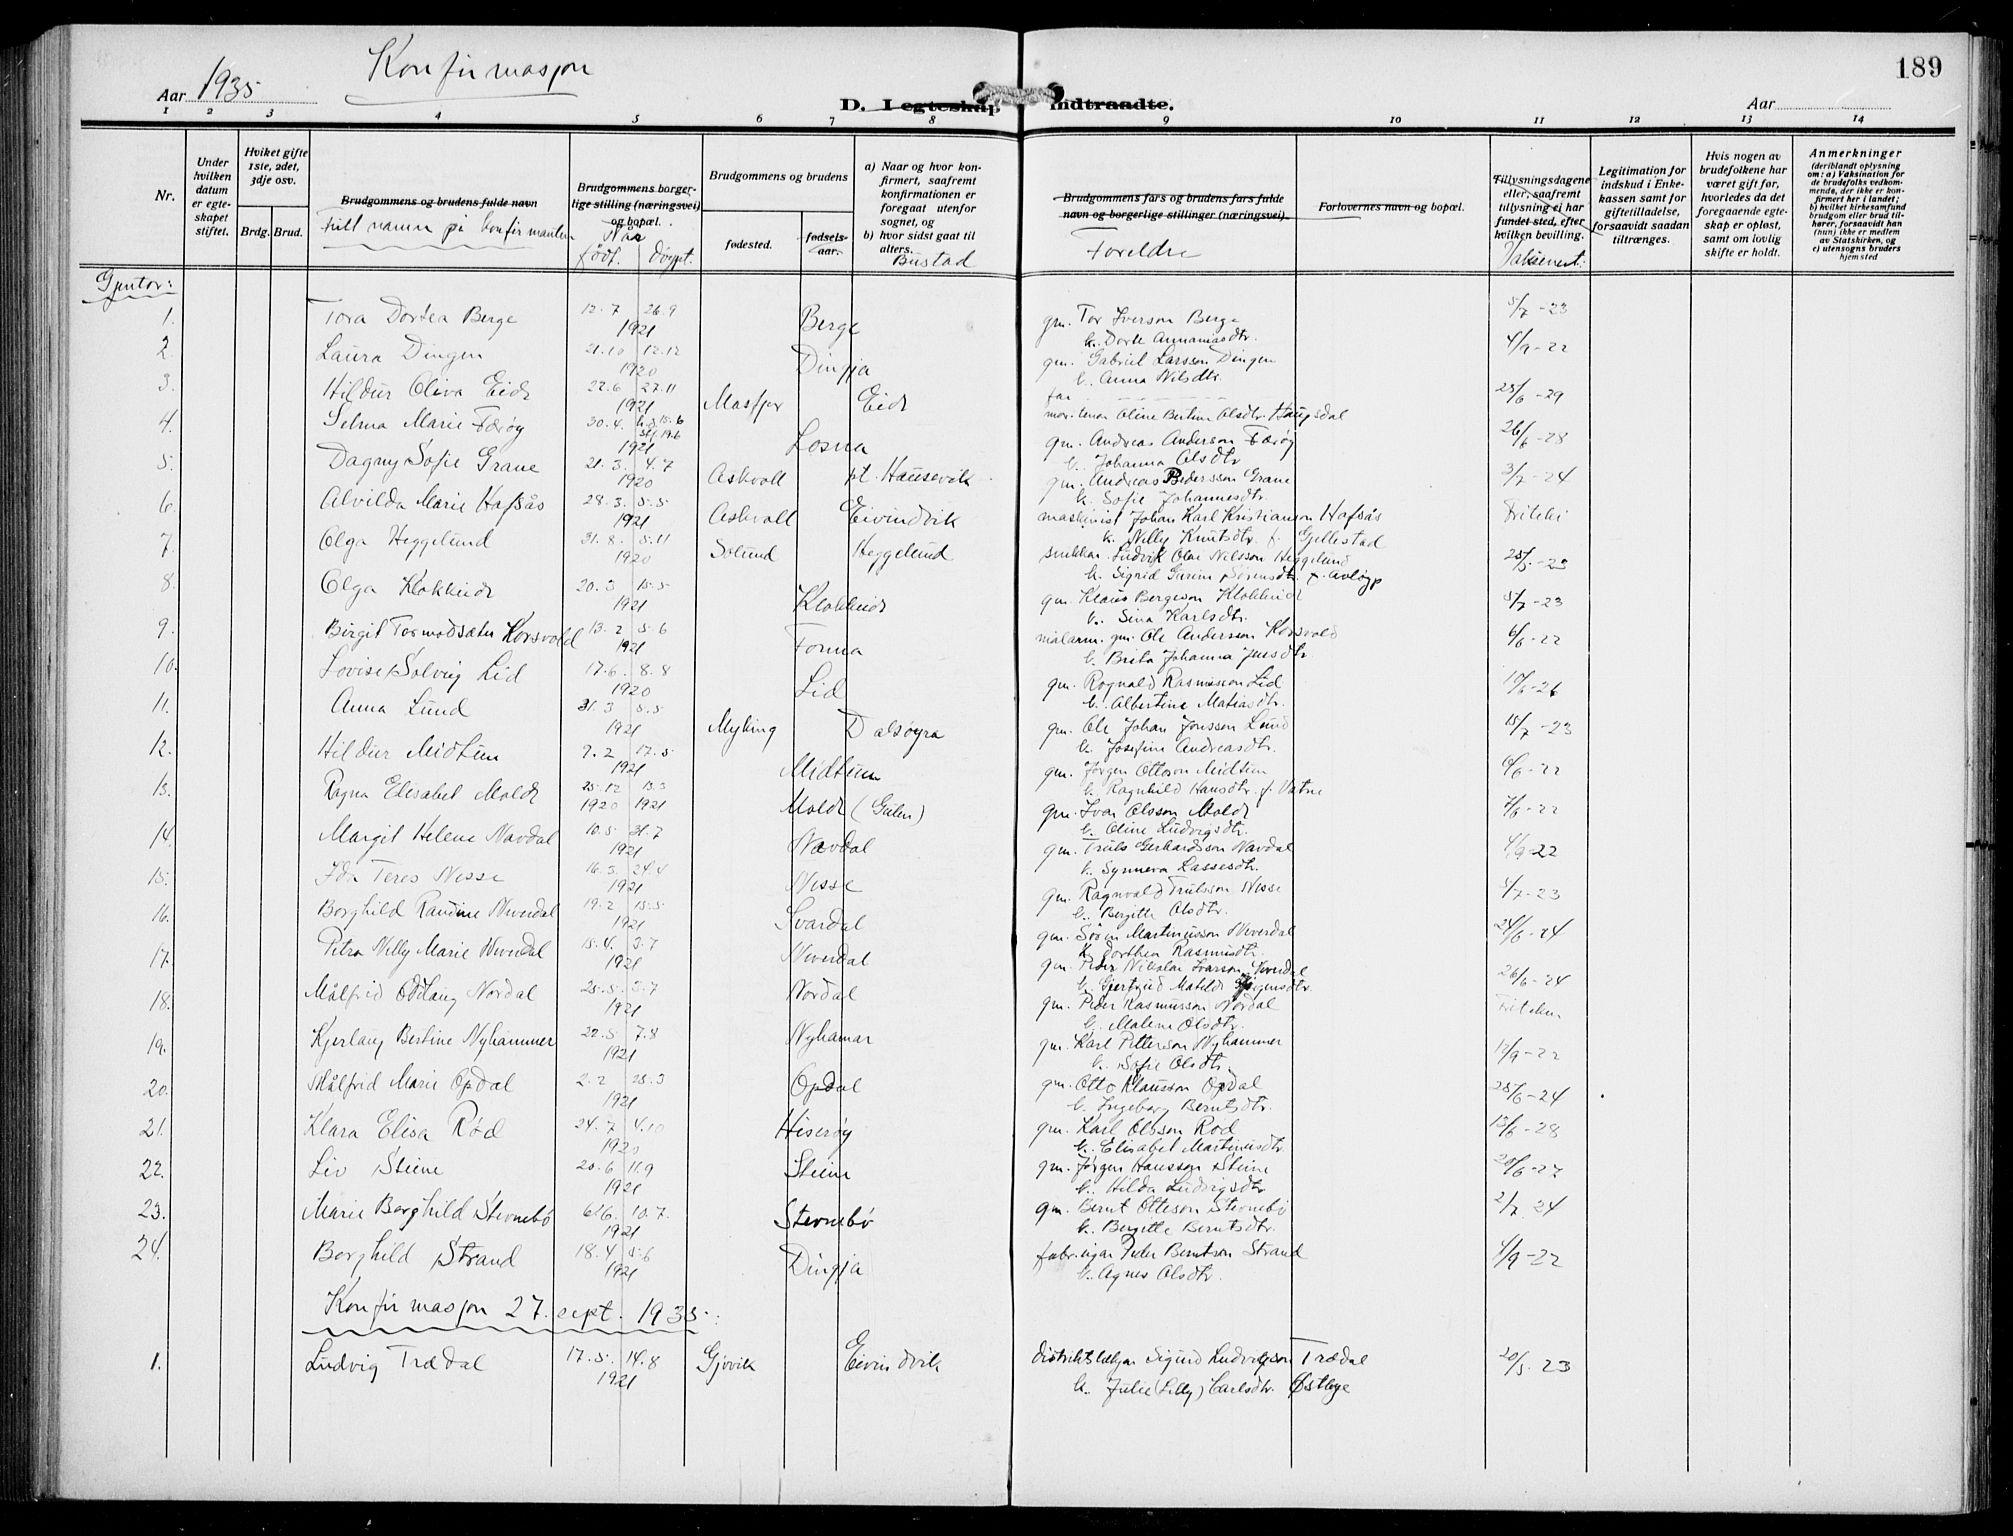 189
Aar 1935 Konfirmasjon
D. Legteskap indtraadte. Aar
1 2 3 4 5 6 7 8 9 10 11 12 13 14
Nr.
Under hvilken datum er egteskapet stiftet.
Hviket gifte 1ste, 2det, 3dje osv.
Brdg. Brud.
Brudgommens og brudens fulde navn
Fullt namn på konfirmanten
Brudgommens borgerlige stilling (næringsvei) og bopæl.
Når
født. døypt.
Brudgommens og brudens
fødested. fødselsaar.
a) Naar og hvor konfirmert, saafremt konfirmationen er foregaat utenfor sognet, og
b) hvor sidst gaat til alters.
Bustad
Brudgommens fars og brudens fars fulde navn og borgerlige stillinger (næringsvei).
Foreldre
Forlovernes navn og bopæl.
Tillysningsdagene eller, saafremt tillysning ei har fundet sted, efter hvilken bevilling.
Vaksinert.
Legitimation for indskud i Enkekassen samt for giftetilladelse, forsaavidt saadan tiltrænges.
Hvis nogen av brudefolkene har været gift før, hvorledes da det foregaaende egteskap er opløst, samt om lovlig skifte er holdt.
Anmerkninger (deriblandt oplysning om: a) Vaksination for de brudefolks vedkommende, der ikke er konfirmert her i landet; b) hvilket kirkesamfund brudgom eller brud tilhører, forsaavidt han (hun) ikke er medlem av Statskirken, og c) utensogns bruders hjemsted
Gjentor:
1. Tora Dortea Berge 12.7 26.9 1921 Berge gm. Tor Iverson Berge 5/7-23
k. Dorte Annaniasdtr.
2. Laura Dingen 21.10 12.12 1920 Dingja gm. Gabriel Larsson Dingen 4/9-22
k. Anna Nilsdtr.
3. Hildur Oliva Eide 22.6 27.11 1921 Masfjor Eide far
mor. Oline Bertine Olsdtr. Haugsdal 25/6-29
4. Selma Marie Færøy 30.4 h.d. 15.6 1921 Losna gm. Andreas Anderson Færøy 26/6-28
k. Johanna Olsdtr
5. Dagny Sofie Grane 21.3 4.7 1920 Askvoll pt. Hausevik gm. Andreas Pedersson Grane 3/7-24
k. Sofie Johannesdtr.
6. Alvilda Marie Hafsås 28.3 5.5 1921 Askvoll Eivindvik maskinist Johan Karl Kristianson Hafsås
k. Nelly Knutsdtr. f. Gjellestad
7. Olga Heggelund 31.8 5.11 1920 Solund Heggelund snikkar. Ludvik Olai Nilsson Heggelund 25/5-23
k. Sigrid Gurine Sørensdtr. f. Avløyp
8. Olga Klokkeide 20.3 15.5 1921 Klokkeide gm. Klaus Bergeson Klokkeide 5/7-23
k. Sina Karlsdtr.
9. Birgit Tormodsæter Korsvold 13.2 5.6 1921 Fonna malarm. gm. Ole Andersson Korsvold 6/6-22
k. Brita Johanna Jensdtr.
10. Lovise Solveig Lid 17.6 8.8 1920 Lid gm. Rognald Rasmusson Lid 10/6-26
k. Albertine Matiasdtr.
11. Anna Lund 31.3 5.5 1921 Myking Dalsøyra gm. Ole Johan Jonsson Lund 15/7-23
k. Josefine Andreasdtr.
12. Hildur Midtun 9.2 17.5 1921 Midtun gm. Jørgen Ottoson Midtun 6/6-22
k. Ragnhild Hansdtr. f. Vatne
13. Ragna Elisabet Molde 25.12 13.3 1920 1921 Molde (Gulen) gm. Ivar Olsson Molde 7/6-22
k. Oline Ludvigsdtr.
14. Margit Helene Navdal 10.5 31.7 1921 Navdal gm. Truls Gerhardson Navdal 4/9-22
k. Synneva Lassesdtr.
15. Ida Teres Nesse 16.3 24.4 1921 Nesse gm. Ragnvald Trulsson Nesse 5/7-23
k. Bergitte Olsdtr.
16. Borghild Randine Neverdal 19.2 15.5 1921 Svardal gm. Søren Martinusson Neverdal 24/6-24
k. Dorthea Rasmusdtr.
17. Petra Nelly Marie Neverdal 15.4 3.7 1921 Neverdal gm. Peder Nikolai Ivarson Neverdal 26/6-24
k. Gjertrud Matilde Jørgensdtr.
18. Målfrid Oddlaug Nordal 25.5 3.7 1921 Nordal gm. Peder Rasmusson Nordal
k. Malene Olsdtr.
19. Kjerlaug Bertine Nyhammer 22.5 7.8 1921 Nyhamar gm. Karl Pettersson Nyhammer 12/9-22
k. Sofie Olsdtr.
20. Målfrid Marie Opdal 2.2 28.3 1921 Opdal gm. Otto Klausson Opdal 25/6-24
k. Ingeborg Berntsdtr.
21. Klara Elisa Rød 24.7 4.10 1920 Hiserøy gm. Karl Olsson Rød 13/6-28
k. Elisabet Martinusdtr.
22. Liv Steine 20.6 11.9 1921 Steine gm. Jørgen Hansson Steine 28/6-27
k. Hilda Ludvigsdtr
23. Marie Borghild Stevnebø 6.6 10.7. 1921 Stevnebø gm. Bernt Otteson Stevnebø 2/7 24
k. Bergitte Berntsdtr.
24. Borghild Strand 18.4 5.6 1921 Dingja fabr.eigar Peder Berntson Strand 4/9-22
k. Agnes Olsdtr.
Konfirmasjon 27. sept. 1935.:
1. Ludvig Trædal 17.5. 14.8 1921 Gjøvik Eivindvik distriktslækjar Sigurd Ludvigson Trædal 20/5. 23
k. Julie (Lilly) Carlsdtr. Østbye